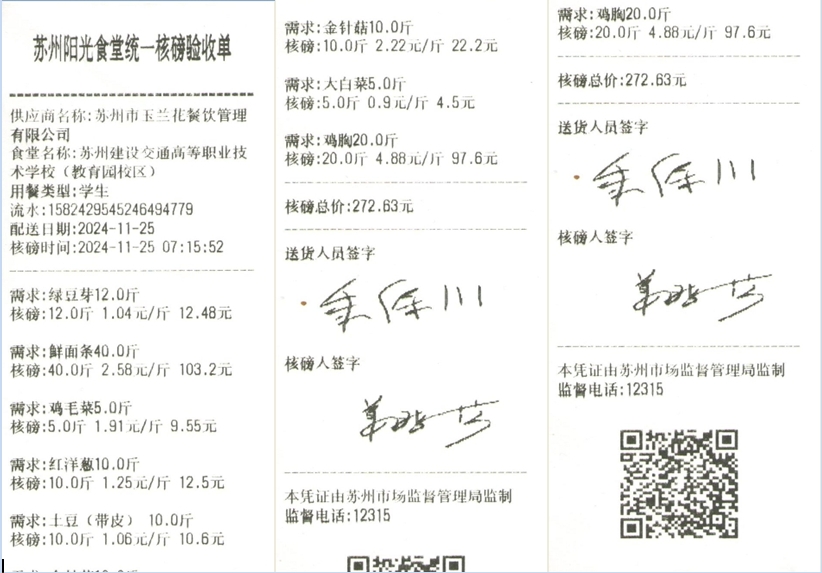 苏州阳光食堂统一核磅验收单
供应商名称:苏州市玉兰花餐饮管理
有限公司
食堂名称:苏州建设交通高等职业技
术学校（教育园校区）
用餐类型:学生
流水:1582429545246494779
配送日期:2024-11-25
核磅时间:2024-11-25 07:15:52
需求:绿豆芽12.0斤
核磅:12.0斤 1.04元/斤 12.48元
需求:鲜面条40.0斤
核磅:40.0斤 2.58元/斤 103.2元
需求:鸡毛菜5.0斤
核磅:5.0斤 1.91元/斤 9.55元
需求:红洋葱10.0斤
核磅:10.0斤 1.25元/斤 12.5元
需求:土豆（带皮） 10.0斤
核磅:10.0斤 1.06元/斤 10.6元
需求:金针菇10.0斤
核磅:10.0斤 2.22元/斤 22.2元
需求:大白菜5.0斤
核磅:5.0斤 0.9元/斤 4.5元
需求:鸡胸20.0斤
核磅:20.0斤 4.88元/斤 97.6元
核磅总价:272.63元
送货人员签字
核磅人签字
本凭证由苏州市场监督管理局监制
监督电话:12315
需求:鸡胸20.0斤
核磅:20.0斤 4.88元/斤 97.6元
核磅总价:272.63元
送货人员签字
核磅人签字
本凭证由苏州市场监督管理局监制
监督电话:12315